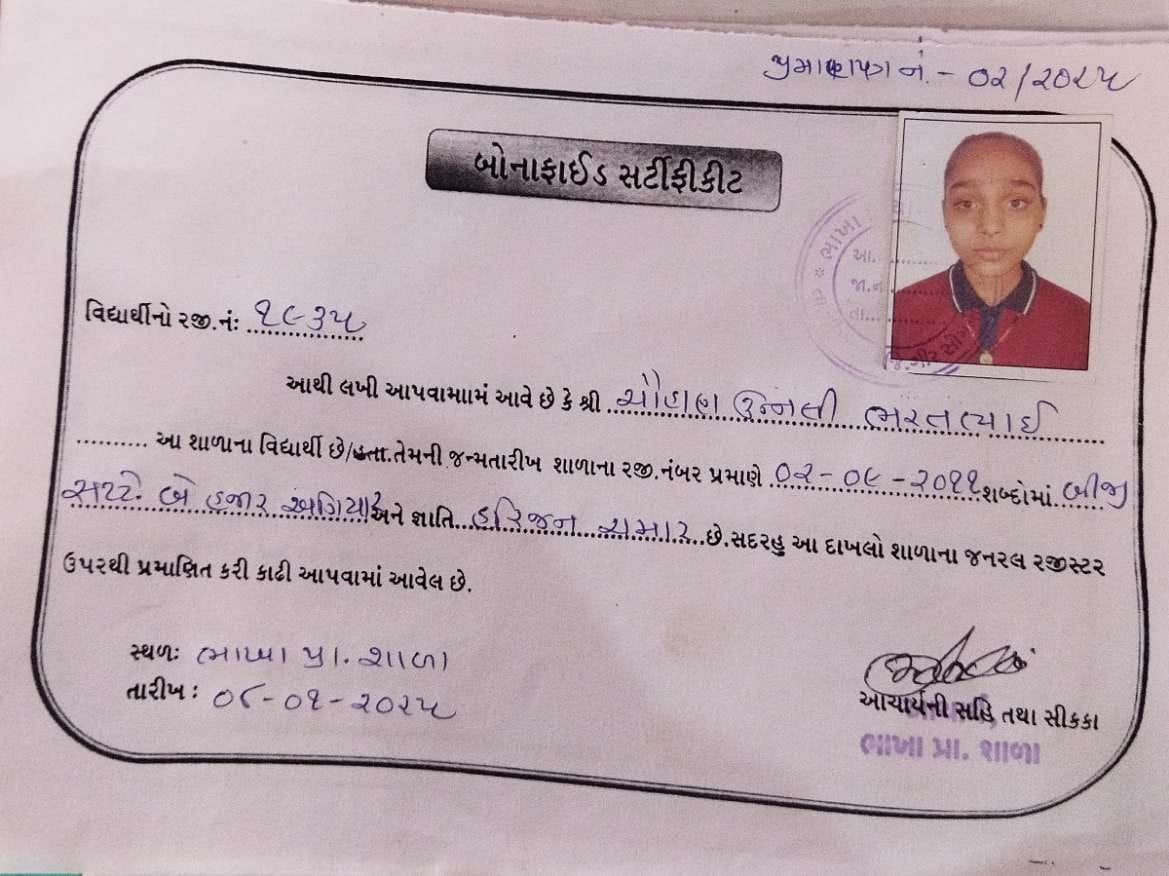 પ્રમાણપત્ર નં.- ૦૨/૨૦૨૫
બોનાફાઈડ સર્ટીફીકીટ
ભાખા
આ.
જા.ન
તા.
જિ.ગીર સોમ
વિદ્યાર્થીનો રજી.નં: ૧૯૩૫
આથી લખી આપવામાામં આવે છે કે શ્રી ચૌહાણ ઉન્નતી ભરતભાઈ
આ શાળાના વિદ્યાર્થી છે/હતા.તેમની જન્મતારીખ શાળાના રજી.નંબર પ્રમાણે ૦૨-૦૯-૨૦૧૧ શબ્દોમાં બીજી
સપ્ટે. બે હજાર અગિયાર અને જ્ઞાતિ હરિજન ચમાર છે.સદરહુ આ દાખલો શાળાના જનરલ રજીસ્ટર
ઉપરથી પ્રમાણિત કરી કાઢી આપવામાં આવેલ છે.
સ્થળ: ભાખા પ્રા. શાળા
તારીખ : ૦૮-૦૧-૨૦૨૫
આચાર્યની સહિ તથા સીકકા
ભાખા પ્રા. શાળા